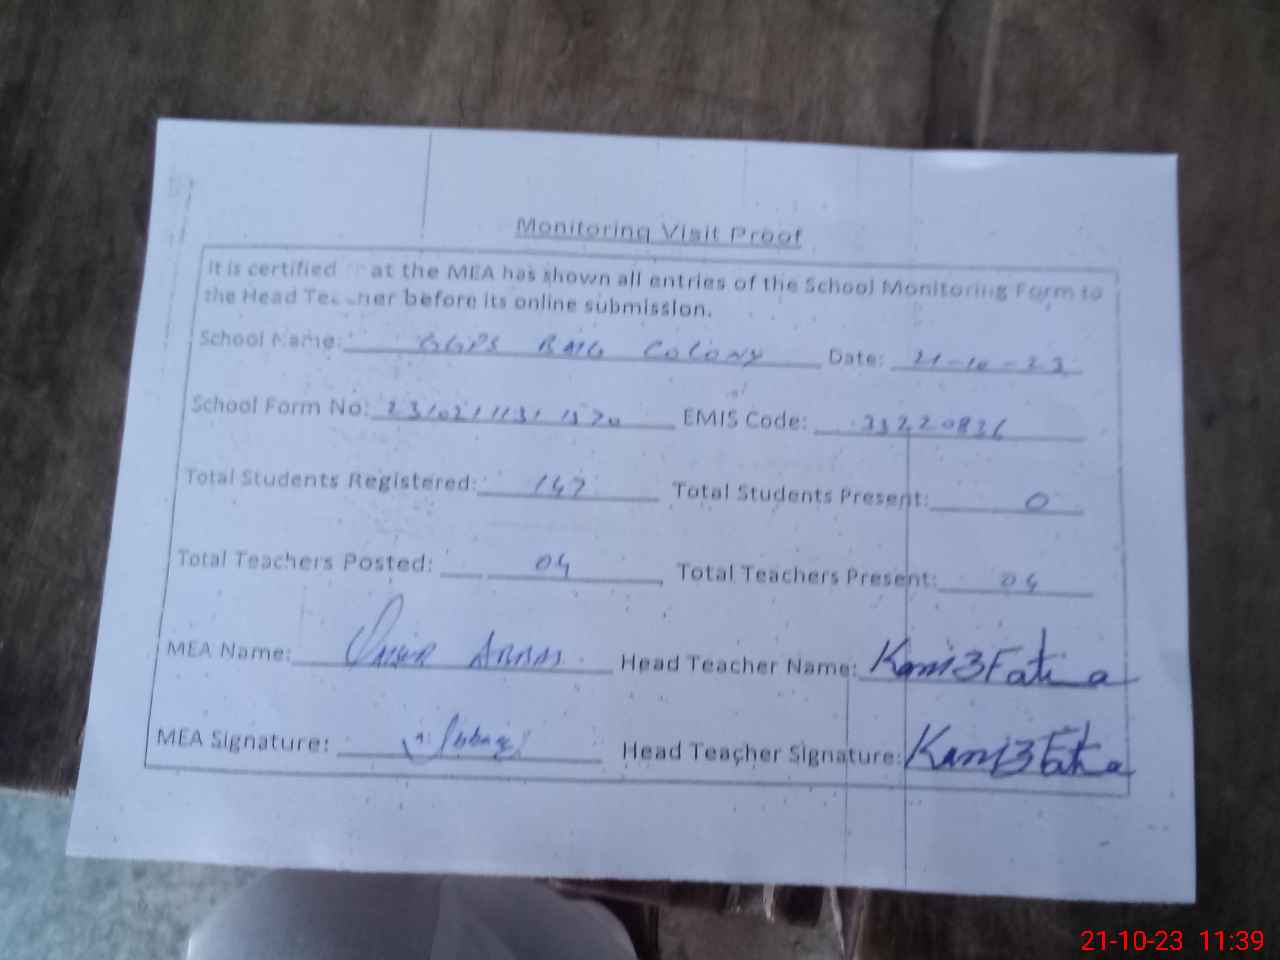 Monitoring Visit Proof
It is certified at the MEA has shown all entries of the School Monitoring Form to
the Head Teacher before its online submission.
School Name: GGPS BMG Colony Date: 21-10-23
School Form No: EMIS Code:
Total Students Registered: 147 Total Students Present: 0
Total Teachers Posted: 04 Total Teachers Present: 04
MEA Name: Head Teacher Name: Kaniz Fatima
MEA Signature: Head Teacher Signature: Kaniz Fatima
21-10-23 11:39